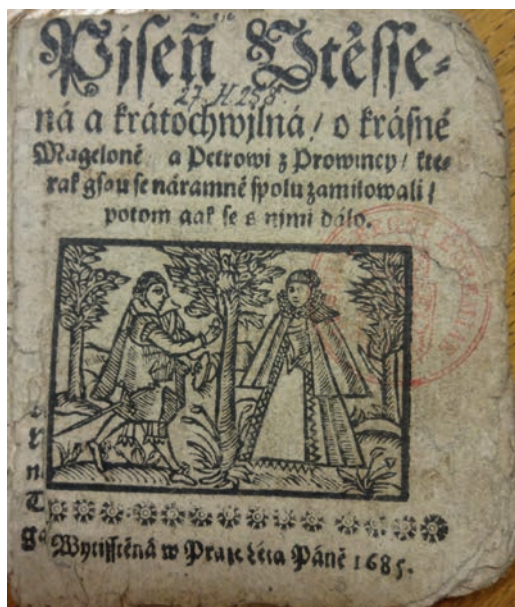 Pjseň Vtěsse-
27 H 258.
ná a krátochwjlná / o krásné
Mageloně a Petrowi z Prowincy / kte-
rak gsau se náramně spolu zamilowali /
potom gak se s nimi dálo.
Wytisstěná w Praze Léta Páně 1685.